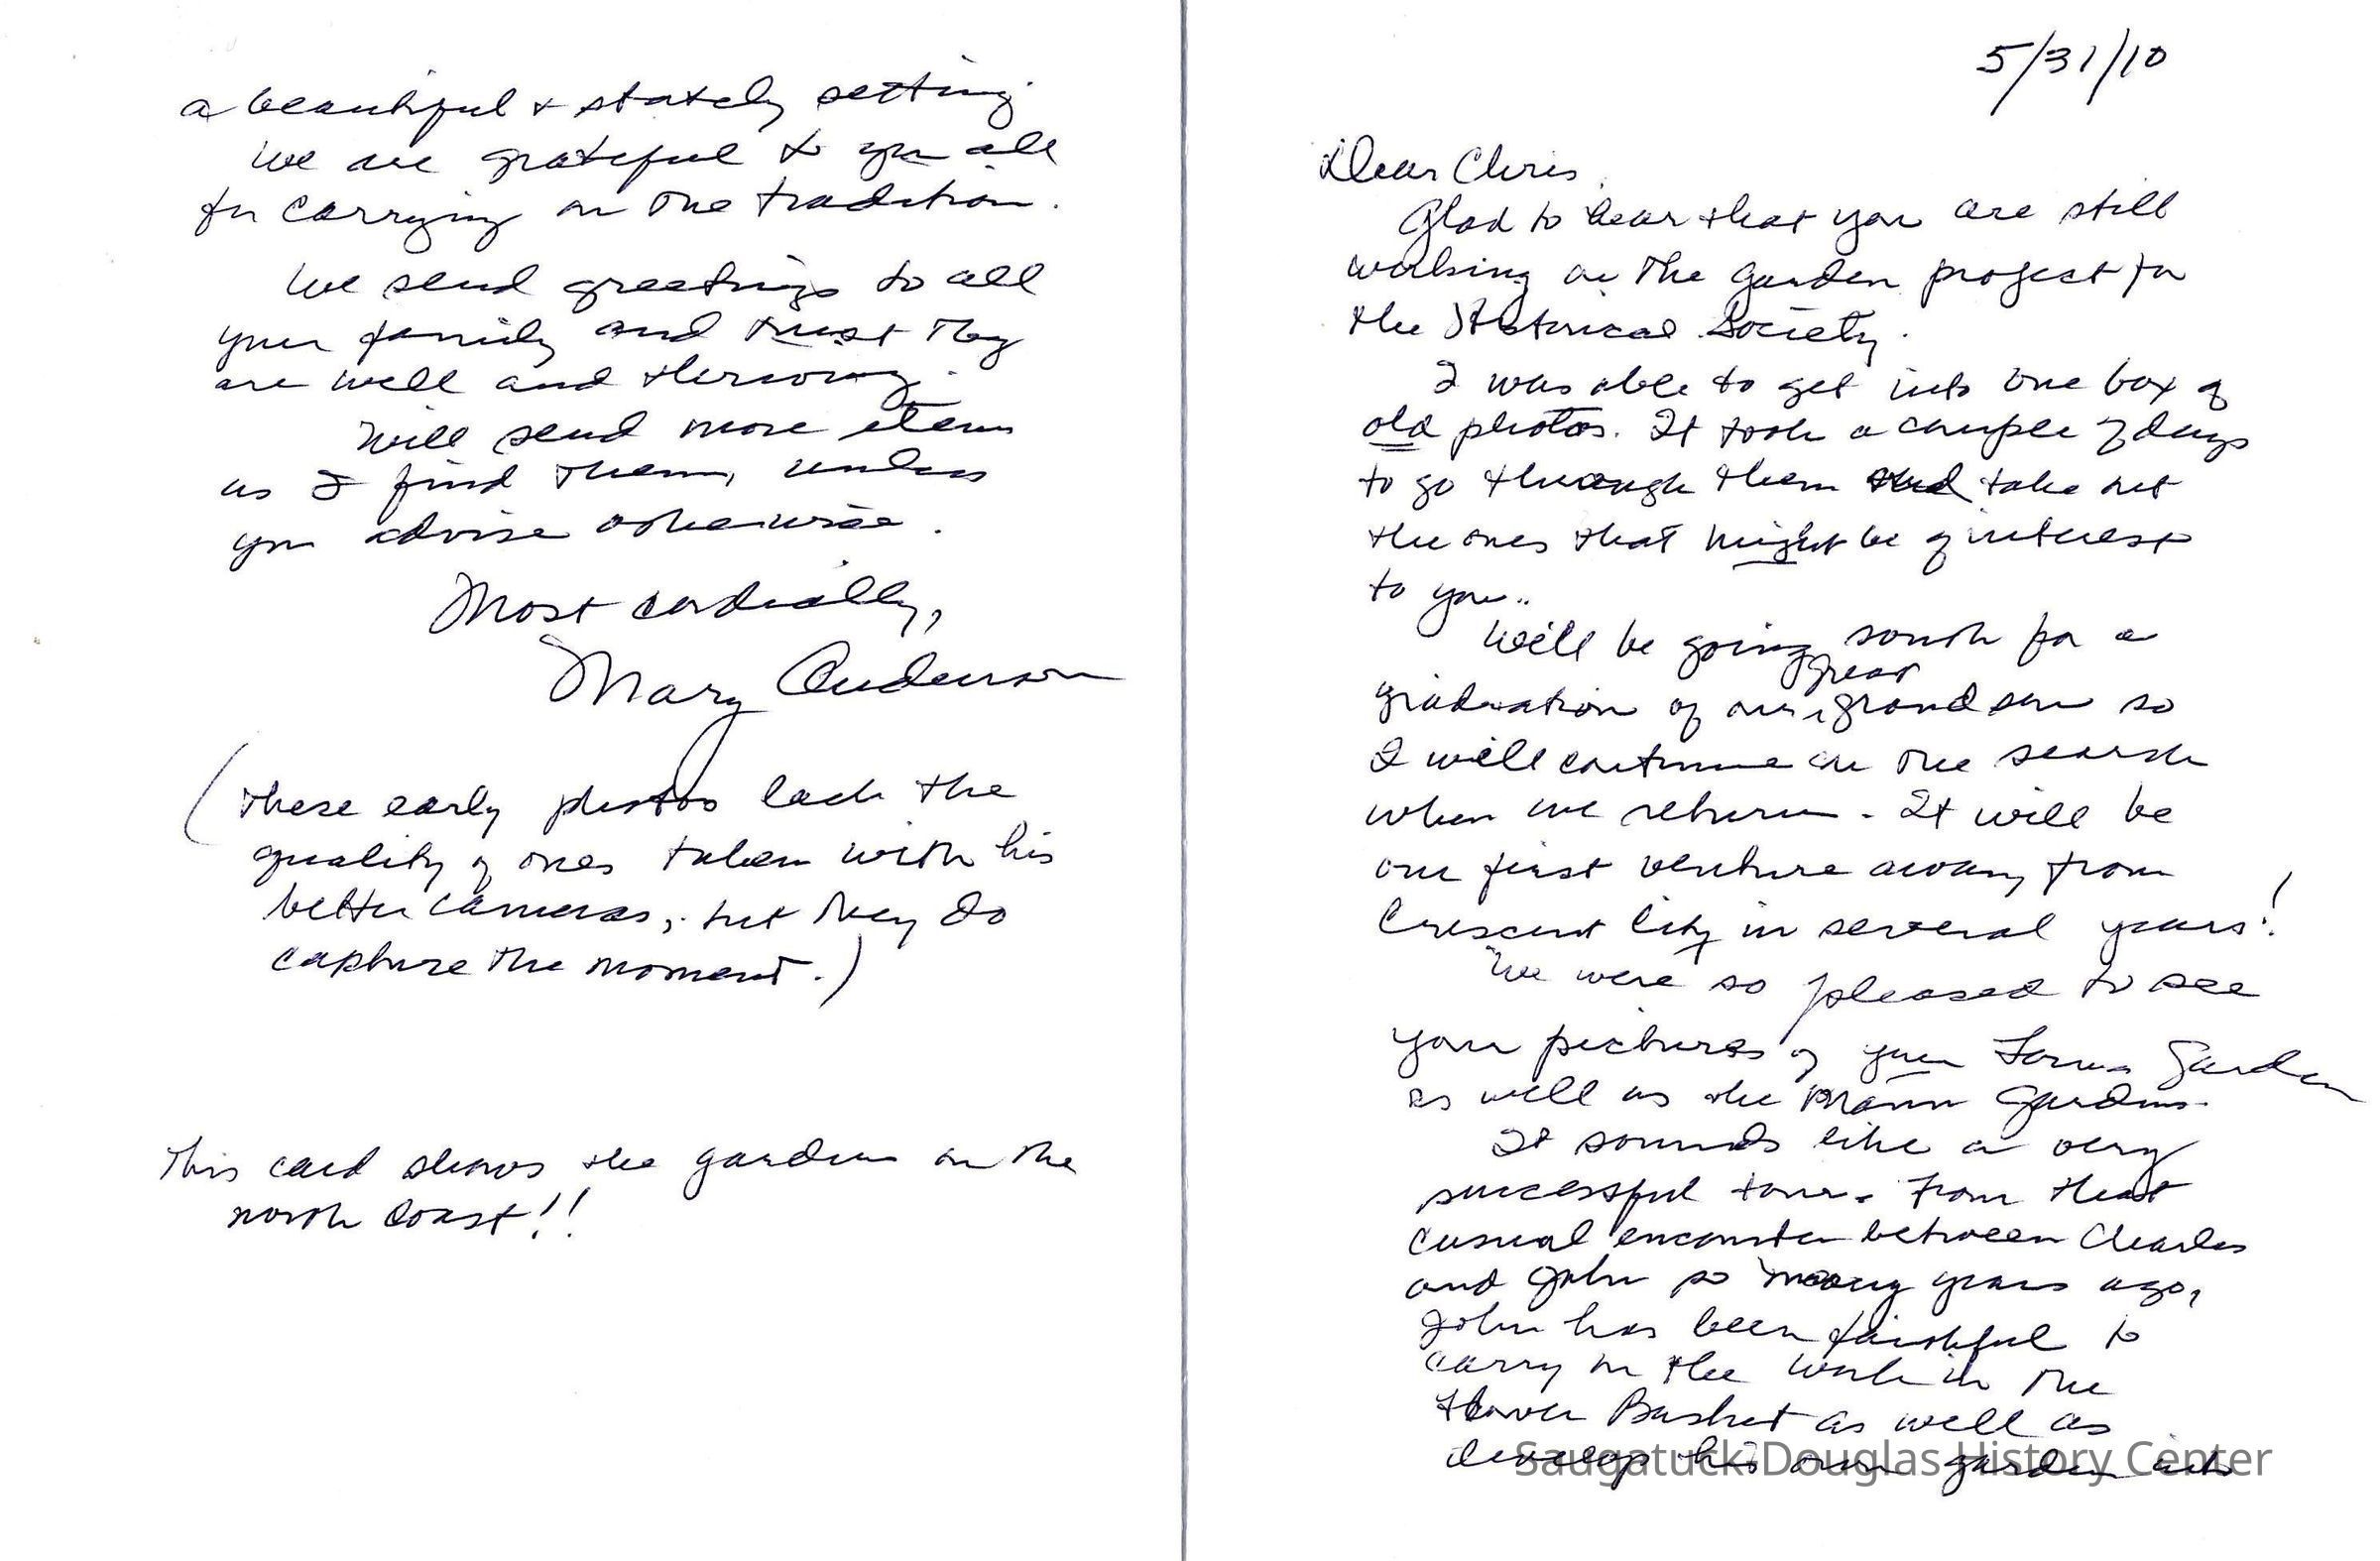 5/31/10
Dear Chris,
Glad to hear that you are still
working on the garden project for
the Historical Society.
I was able to get into one box of
old photos. It took a couple of days
to go through them and take out
the ones that might be of interest
to you..
Will be going south for a
graduation of our great grandson so
I will continue on the search
when we return. It will be
our first venture away from
Crescent City in several years!
We were so pleased to see
your pictures of your Farm Garden
as well as the Mann Gardens.
It sounds like a very
successful tour. From that
casual encounter between Charles
and John so many years ago,
John has been faithful to
carry on the work in the
Flower Basket as well as
develop his own garden into
a beautiful & stately setting.
We are grateful to you all
for carrying on the tradition.
We send greetings to all
your family and trust they
are well and thriving.
Will send more items
as I find them, unless
you advise otherwise.
Most cordially,
Mary Anderson
(These early photos lack the
quality of ones taken with his
better cameras, but they do
capture the moment.)
This card shows the gardens on the
north coast!!
Saugatuck-Douglas History Center